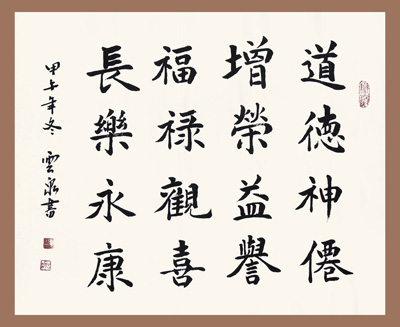 道德神僊
增榮益譽
福祿觀喜
長樂永康
甲午年冬 雲泉書